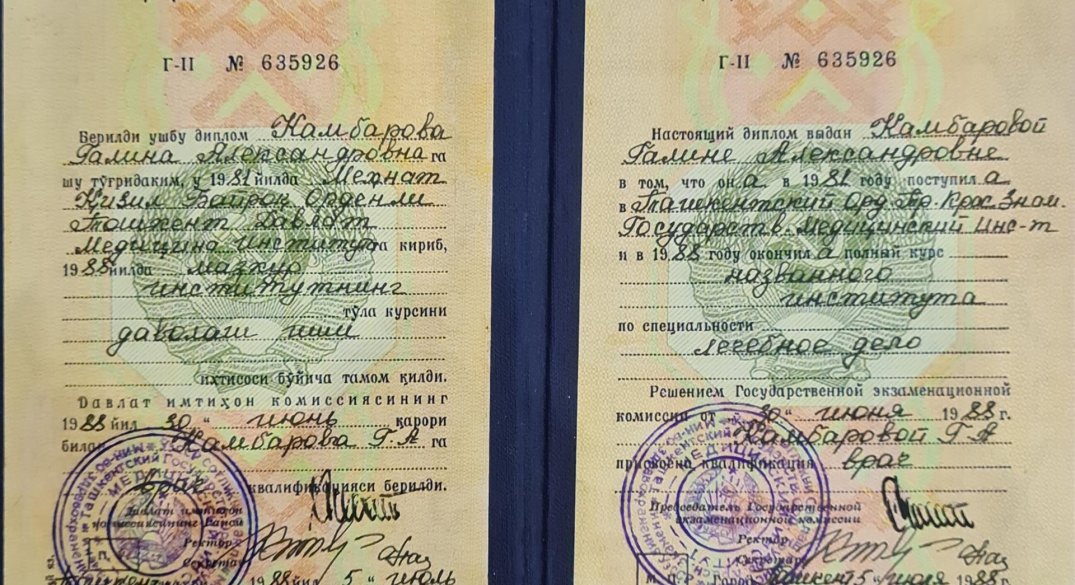 Г-II № 635926
Берилди ушбу диплом Камбарова
Галина Александровна га
шу тўғридаким, у 1981 йилда Меҳнат
Қизил Байроқ Орденли
Тошкент Давлат
Медицина институтига кириб,
1988 йилда мазкур
институтнинг
тўла курсини
даволаш иши
ихтисоси бўйича тамом қилди.
Давлат имтиҳон комиссиясининг
1988 йил 30 " июнь қарори
билан Камбарова Г.А га
врач
квалификацияси берилди.
Давлат имтиҳон
комиссиясининг Раиси
Ректор
Секретарь
1988 йил 5 " июль
Г-II № 635926
Настоящий диплом выдан Камбаровой
Галине Александровне
в том, что он а в 1981 году поступил а
в Ташкентский Орд Тр. Крас. Знам.
Государств. Медицинский Инс-т
и в 1988 году окончил а полный курс
названного
института
по специальности
лечебное дело
Решением Государственной экзаменационной
комиссии от 30 " июня 1988 г.
Камбаровой Г.А
присвоена квалификация врач
Председатель Государственной
экзаменационной комиссии
Ректор
Секретарь
М. П. Город Ташкент 5 " июля 1988